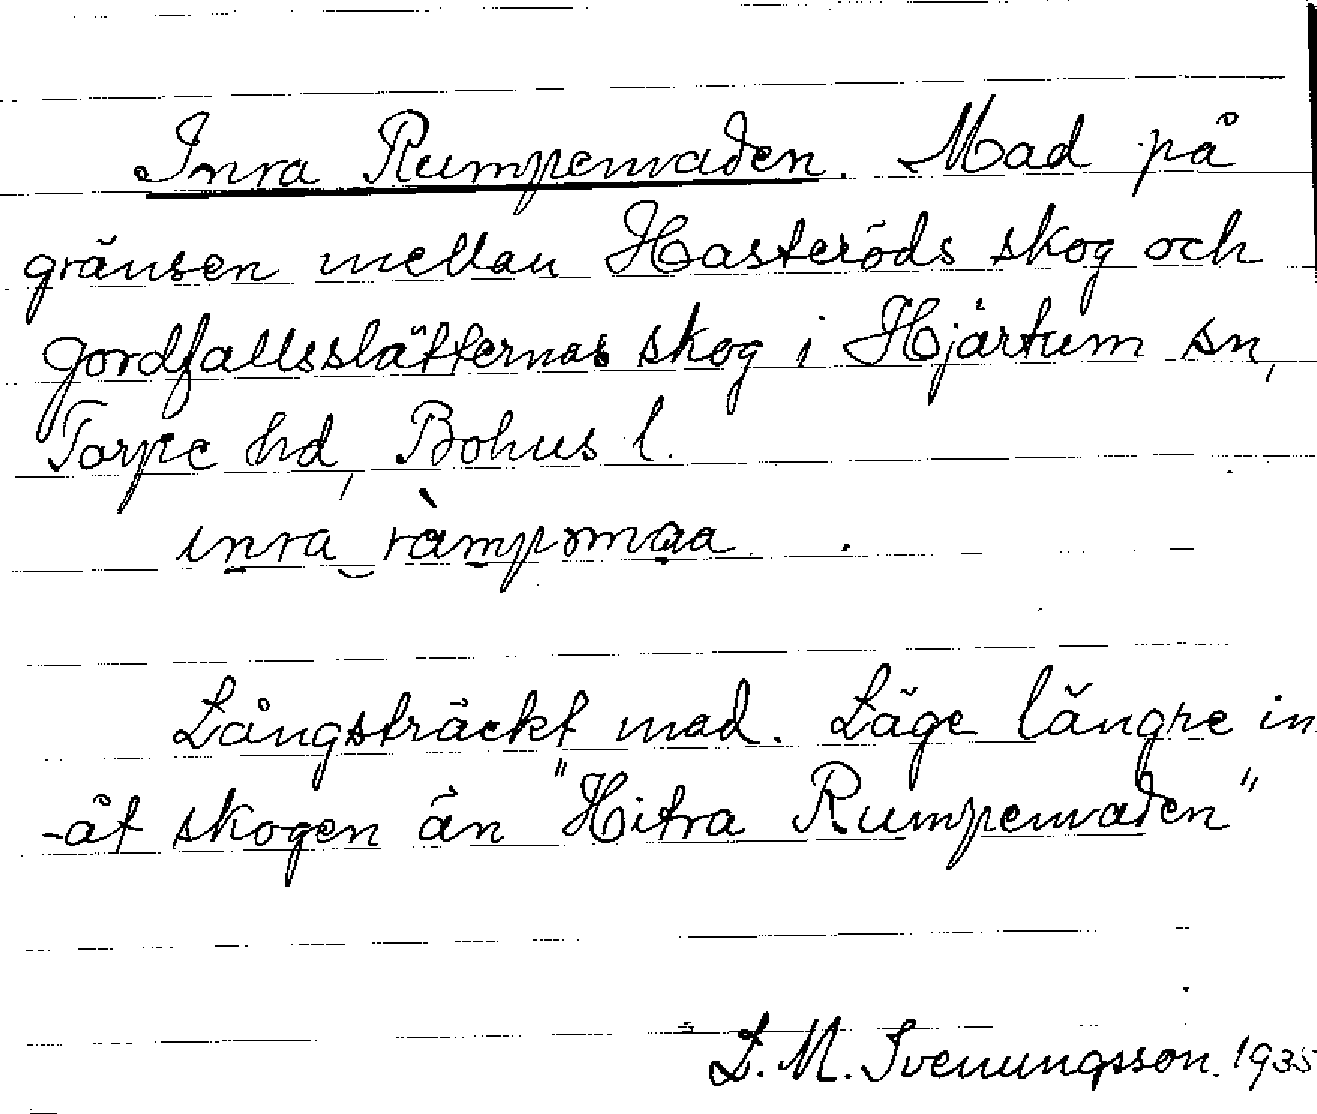 Inra Rumpemaden. Mad på
gränsen mellan Hasteröds skog och
Gordfallsslätternas skog i Hjärtum sn,
Torpe hd, Bohus l.
inra
Långsträckt mad. Läge längre in
-åt skogen än "Hitra Rumpemaden"
L. M. Svenungsson. 1935